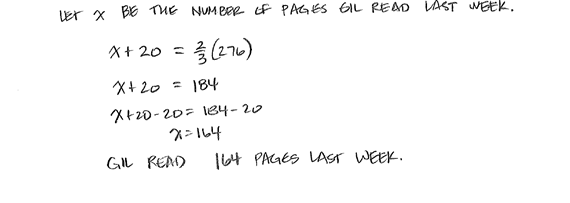 LET x BE THE NUMBER OF PAGES GIL READ LAST WEEK.
x + 20 = 2/3 (276)
x + 20 = 184
x + 20 - 20 = 184 - 20
x = 164
GIL READ 164 PAGES LAST WEEK.